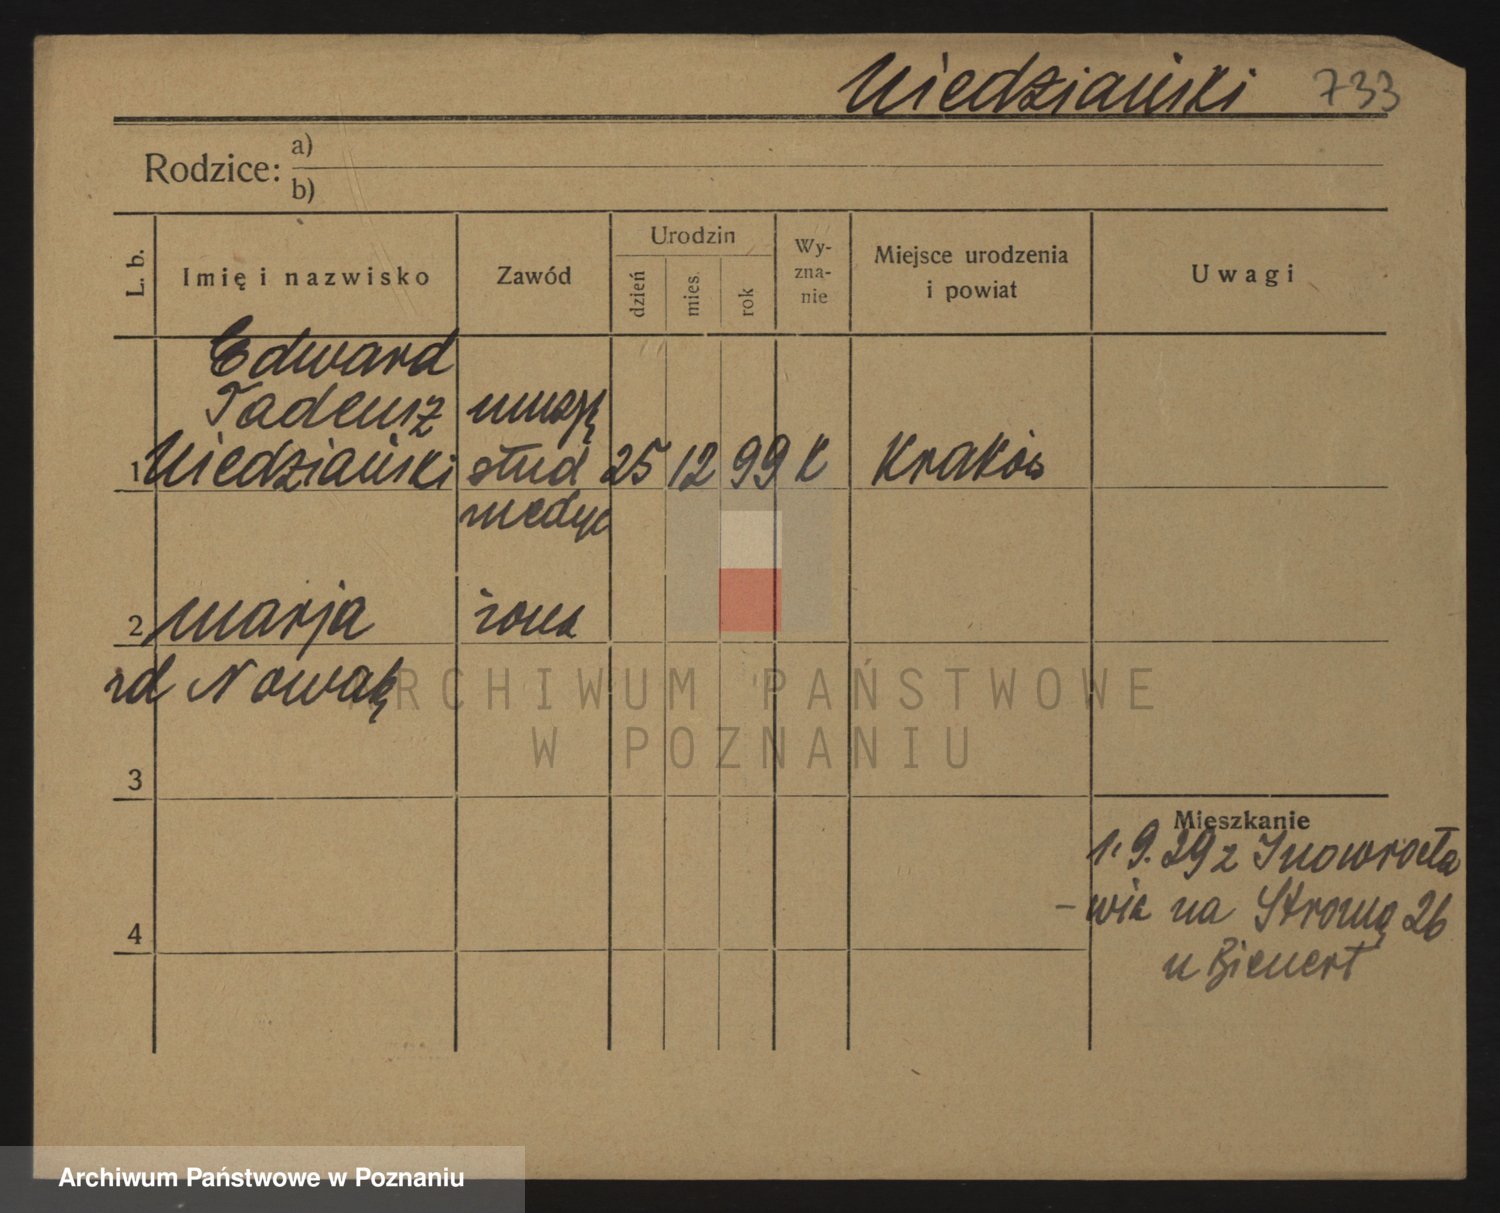 Niedziański 733
Rodzice: a)
b)
L. b. Imię i nazwisko Zawód Urodzin dzień mies. rok Wy-zna-nie Miejsce urodzenia i powiat Uwagi
Edward
Tadeusz
1 Niedziański stud 25 12 99 K Kraków
medyc
2 Marja żona
rd Nowak
3
4
Mieszkanie
1.9.29 z Inowrocła
- wia na Stromą 26
u Bienert
ARCHIWUM PAŃSTWOWE
W POZNANIU
Archiwum Państwowe w Poznaniu